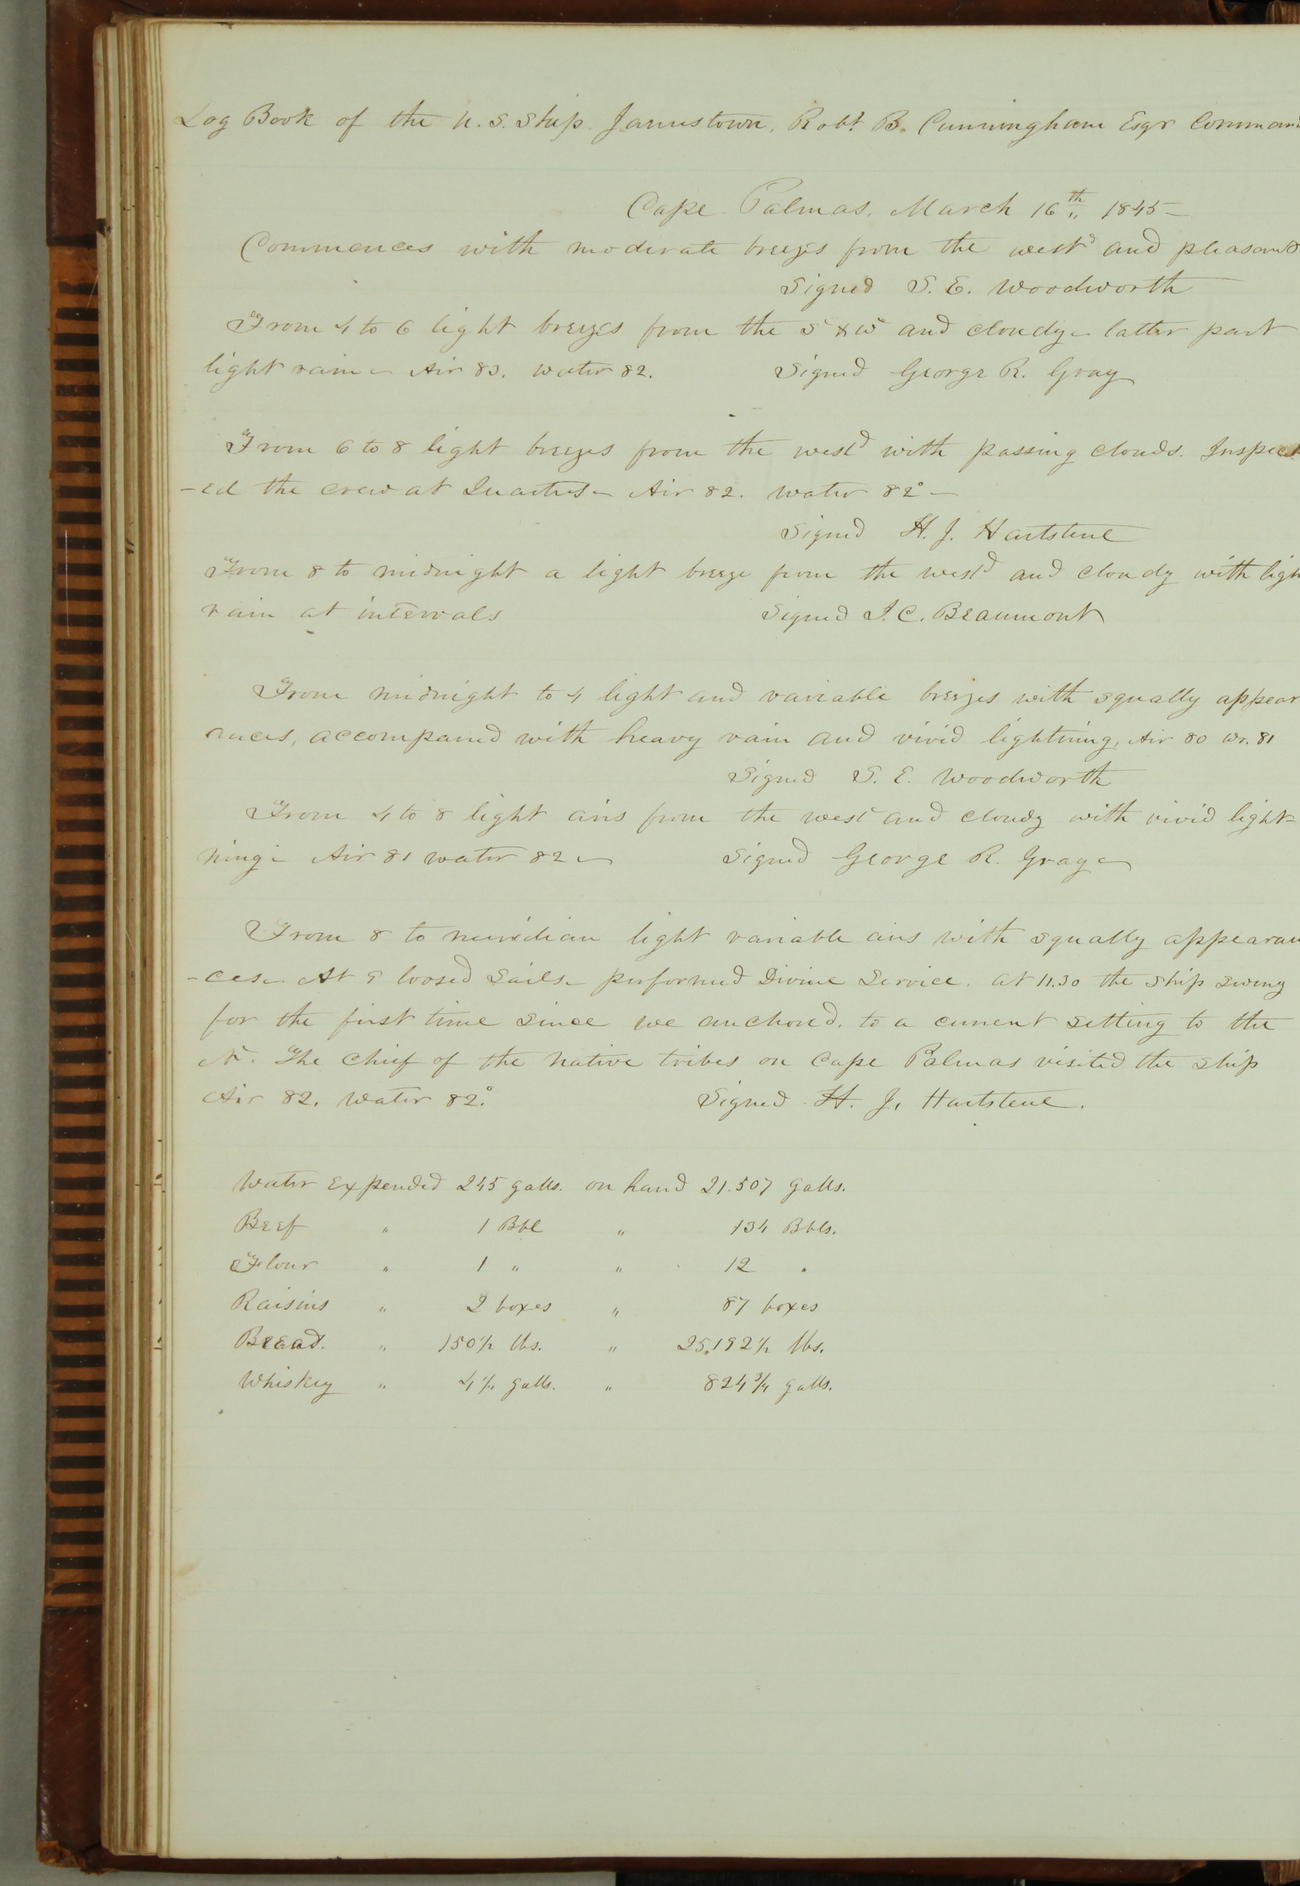 Log Book of the U.S. Ship Jamestown, Robt. B. Cunningham Esqr Comman
Cape Palmas, March 16th 1845 –
Commences with moderate breezes from the westd and pleasant
Signed S. E. Woodworth
From 4 to 6 light breezes from the Sd & Wd and cloudy – latter part
light rain – Air 83. water 82. Signed George R. Gray
From 6 to 8 light breezes from the westd with passing clouds. Inspect
-ed the crew at Quarters – Air 82. water 82° –
Signed H. J. Hartstene
From 8 to midnight a light breeze from the westd and cloudy with ligh
rain at intervals Signed J. C. Beaumont
From midnight to 4 light and variable breezes with squally appear
ances, accompanied with heavy rain and vivid lightning, Air 80 Wr. 81
Signed S. E. Woodworth
From 4 to 8 light airs from the westd and cloudy with vivid light=
ning – Air 81 water 82 – Signed George R. Gray –
From 8 to meridian light variable airs with squally appearan
-ces – At 9 loosed Sails – performed Divine Service. at 11.30 the Ship swung
for the first time since we anchored, to a current setting to the
Nd. The Chief of the native tribes on Cape Palmas visited the Ship
Air 82. Water 82.° Signed H. J. Hartstene.
Water Expended 245 galls. on hand 21.507 galls.
Beef " 1 Bbl " 134 Bbls.
Flour " 1 " " 12 "
Raisins " 2 boxes " 87 boxes
Bread. " 150 1/2 lbs. " 25,192 1/2 lbs.
Whiskey " galls. " 824 3/4 galls.